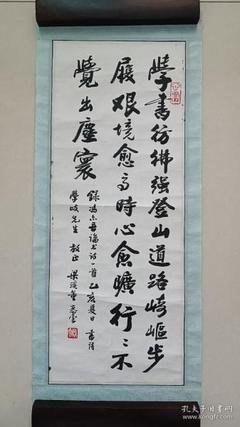 學書彷彿強登山道路崎嶇步
履艱境愈高時心愈曠行々不
覺出塵寰
錄馮亦吾論书詩一首乙亥夏日書請
學岐先生 教正 梁溪童
孔夫子旧书网